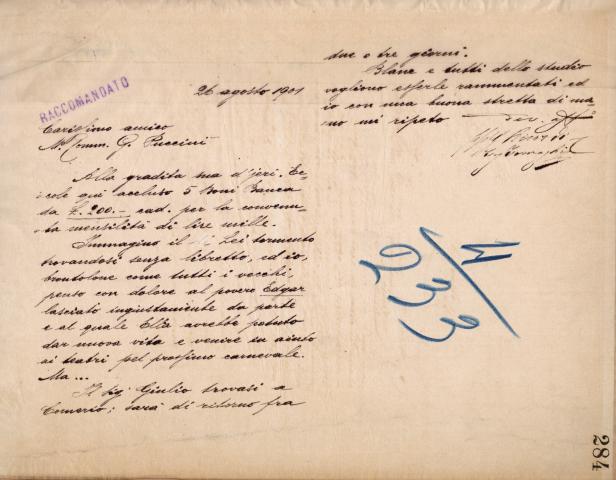 RACCOMANDATO
26 agosto 1901
Carissimo amico
M. Comm. G. Puccini
Alla gradita sua d'jeri. Ec-
cole qui accluso 5 boni Banca
da £. 200.- cad. per la convenu-
ta mensilità di lire mille.
Immagino il di Lei tormento
trovandosi senza libretto, ed io,
brontolone come tutti i vecchi,
penso con dolore al povero Edgar
lasciato ingiustamente da parte
e al quale Ella avrebbe potuto
dar nuova vita e venire in aiuto
ai teatri pel prossimo carnevale.
Ma...
Il Sig. Giulio trovasi a
Comerio; sarà di ritorno fra
due o tre giorni.
Blanc e tutti dello studio
vogliono esserle rammentati ed
io con una buona stretta di ma-
no mi ripeto
dev. aff.
4/233
284